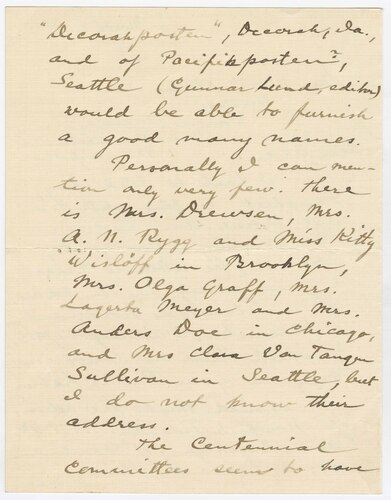 "Decorahposten", Decorah, Ia.,
and of Pacifikposten",
Seattle (Gunnar Lund, editor)
would be able to furnish
a good many names.
Personally I can men-
tion only very few. There
is Mrs. Drewsen, Mrs.
A. N. Rygg and Miss Kitty
Wislöff in Brooklyn,
Mrs. Olga Graff, Mrs.
Lagerta Meyer and Mrs.
Anders Doe in Chicago,
and Mrs Clara Van Tangen
Sullivan in Seattle, but
I do not know their
address.
The Centennial
Committees seem to have